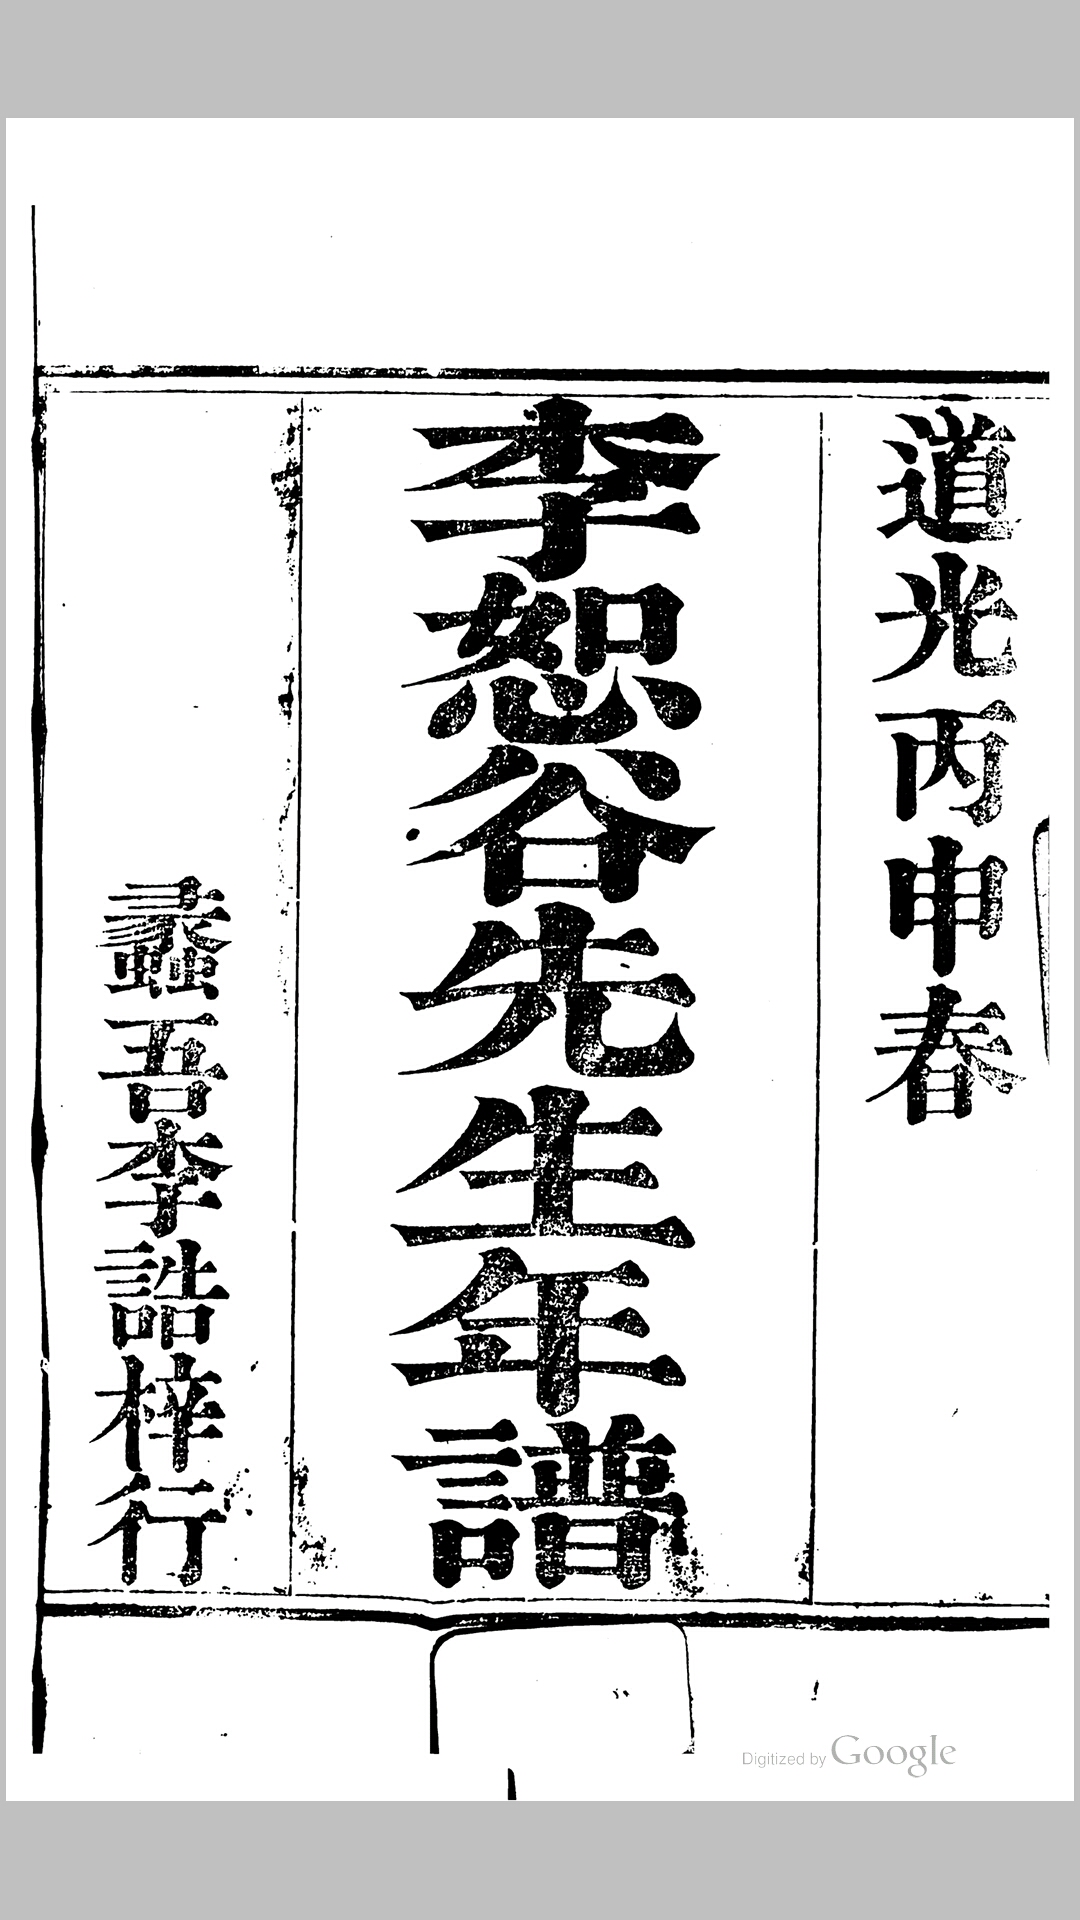 道光丙申春
李恕谷先生年譜
蠡吾李誥梓行
Digitized by Google